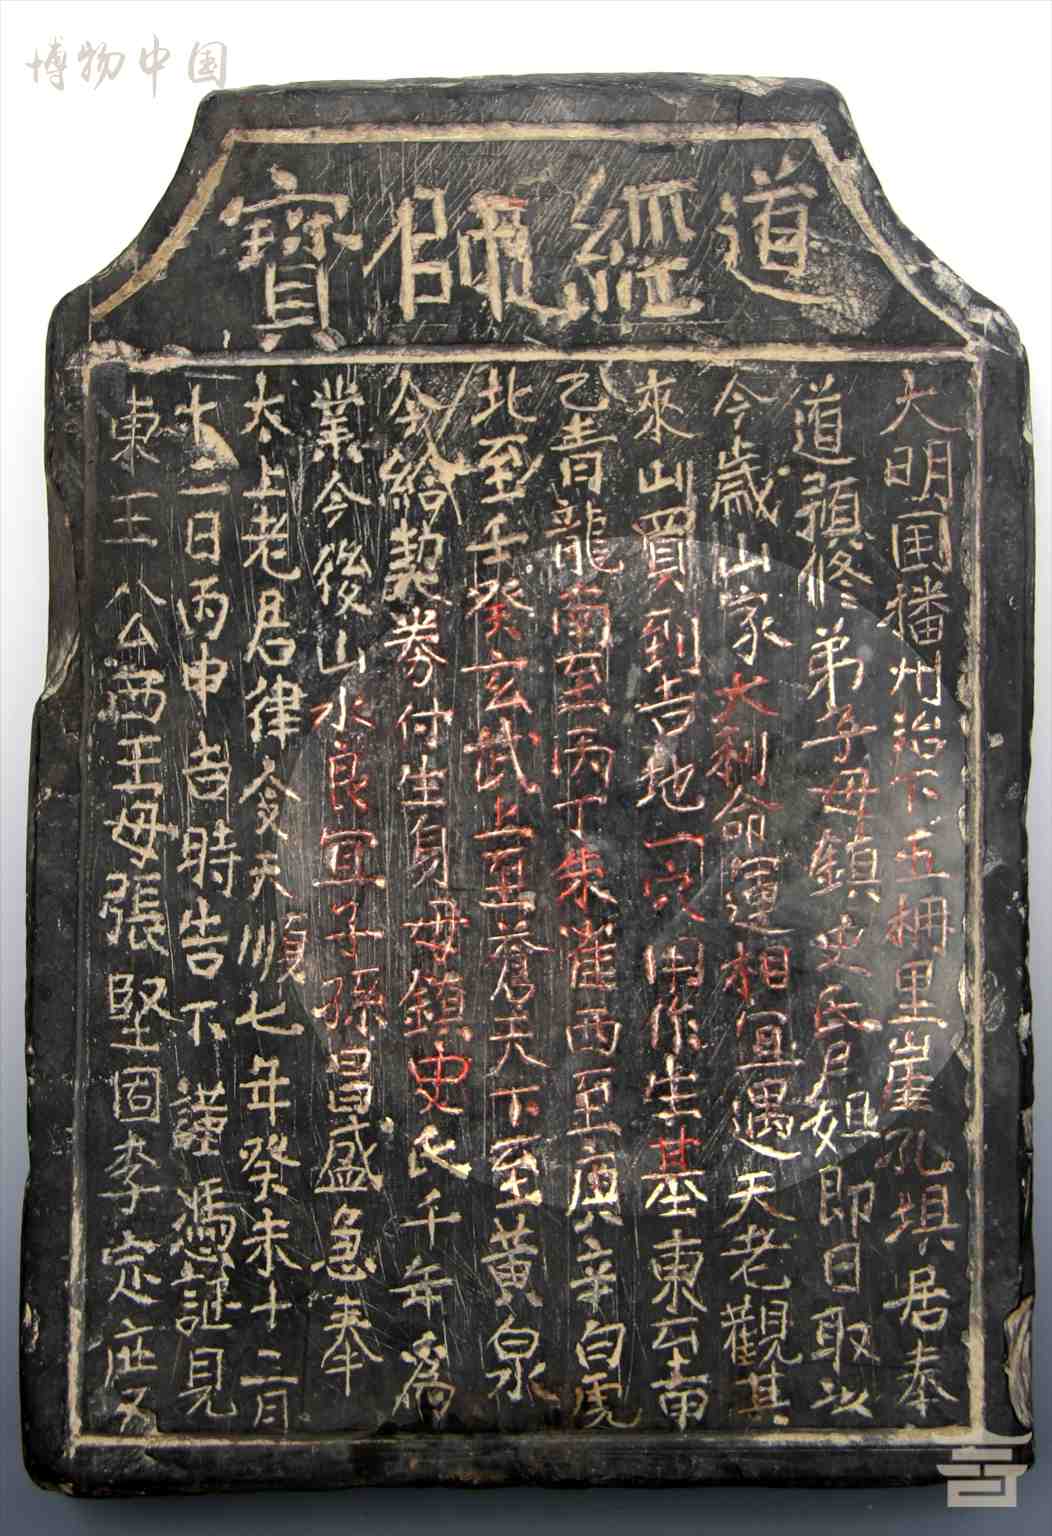 博物中国
道經師寶
大明国播州治下五栅里崖孔垻居奉
道預修弟子母鎮史氏尸姐即日取以
今歲山家大利命運相宜遇天老觀其
來山買到吉地一穴用作生基東至甲
乙青龍南至丙丁朱雀西至庚辛白虎
北至壬癸玄武上至蒼天下至黃泉
今給契券付生身母鎮史氏千年爲
業今後山水良宜子孫昌盛急奉
太上老君律令天順七年癸未十二月
十二日丙申吉時告下謹憑証見
東王公西王母張堅固李定度